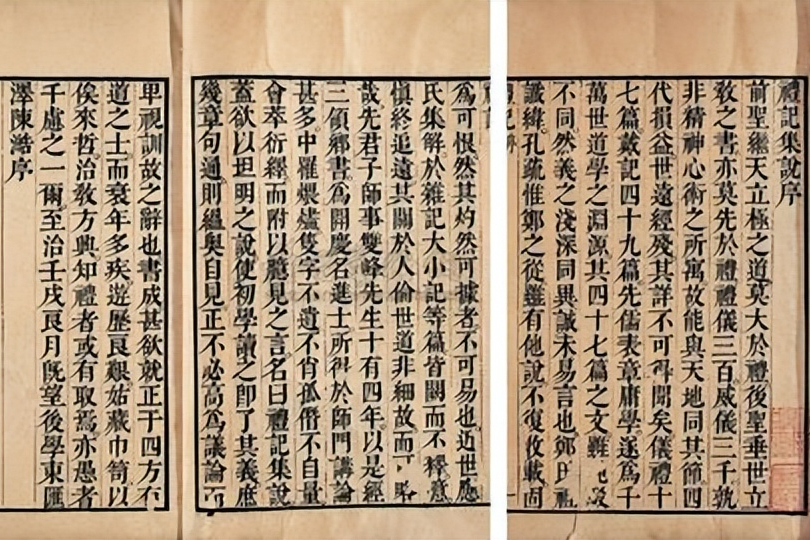 禮記集說序
前聖繼天立極之道莫大於禮後聖垂世立
敎之書亦莫先於禮禮儀三百威儀三千孰
非精神心術之所寓故能與天地同其節四
代損益世遠經殘其詳不可得聞矣儀禮十
七篇戴記四十九篇先儒表章庸學遂爲千
萬世道學之淵源其四十七篇之文雖
不同然義之淺深同異誠未易言也鄭氏祖
讖緯孔疏惟鄭之從雖有他說不復收載固
爲可恨然其灼然可據者不可易也近世應
氏集解於雜記大小記等篇皆闕而不釋意
愼終追遠其關於人倫世道非細故而可略
哉先君子師事雙峰先生十有四年以是經
三領鄕書爲開慶名進士所得於師門講論
甚多中罹煨燼隻字不遺不肖孤僭不自量
會萃衍繹而附以臆見之言名曰禮記集說
蓋欲以坦明之說使初學讀之卽了其義庶
幾章句通則縕奥自見正不必高爲議論而
卑視訓故之辭也書成甚欲就正于四方有
道之士而衰年多疾遊歷良艱姑藏巾笥以
俟來哲治敎方興知禮者或有取焉亦愚者
千慮之一爾至治壬戌良月旣望後學東匯
澤陳澔序